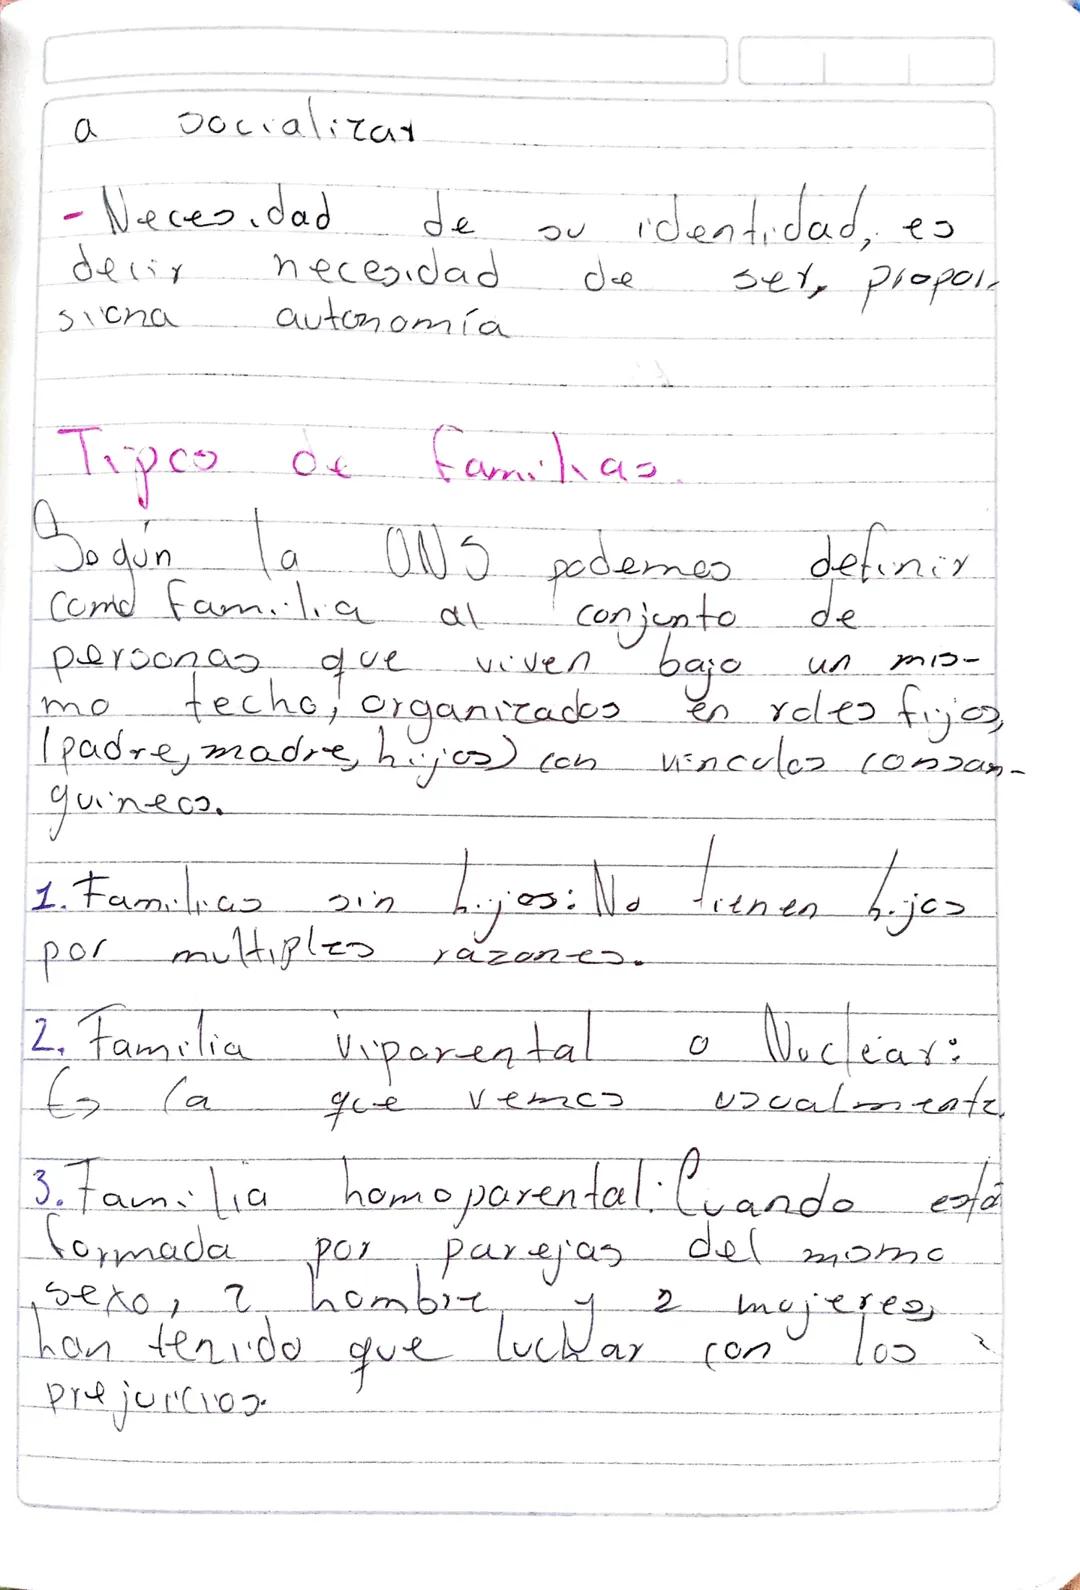 a socializar
- Necesidad de su identidad, es
decir necesidad de ser, propor-
siona autonomía
Tipos de familias.
Según la ONS podemos definir
como familia al conjunto de
personas que viven bajo un mis-
mo techo, organizados en roles fijos,
(padre, madre, hijos) con vínculos consan-
guineos.
1. Familias sin hijos: No tienen hijos
por multiples razones.
2. Familia viparental o Nuclear:
Es la que vemos usualmente.
3. Familia homoparental: Cuando está
formada por parejas del momo
sexo, 2 hombre y 2 mujeres,
han tenido que luchar con los
prejuicios.